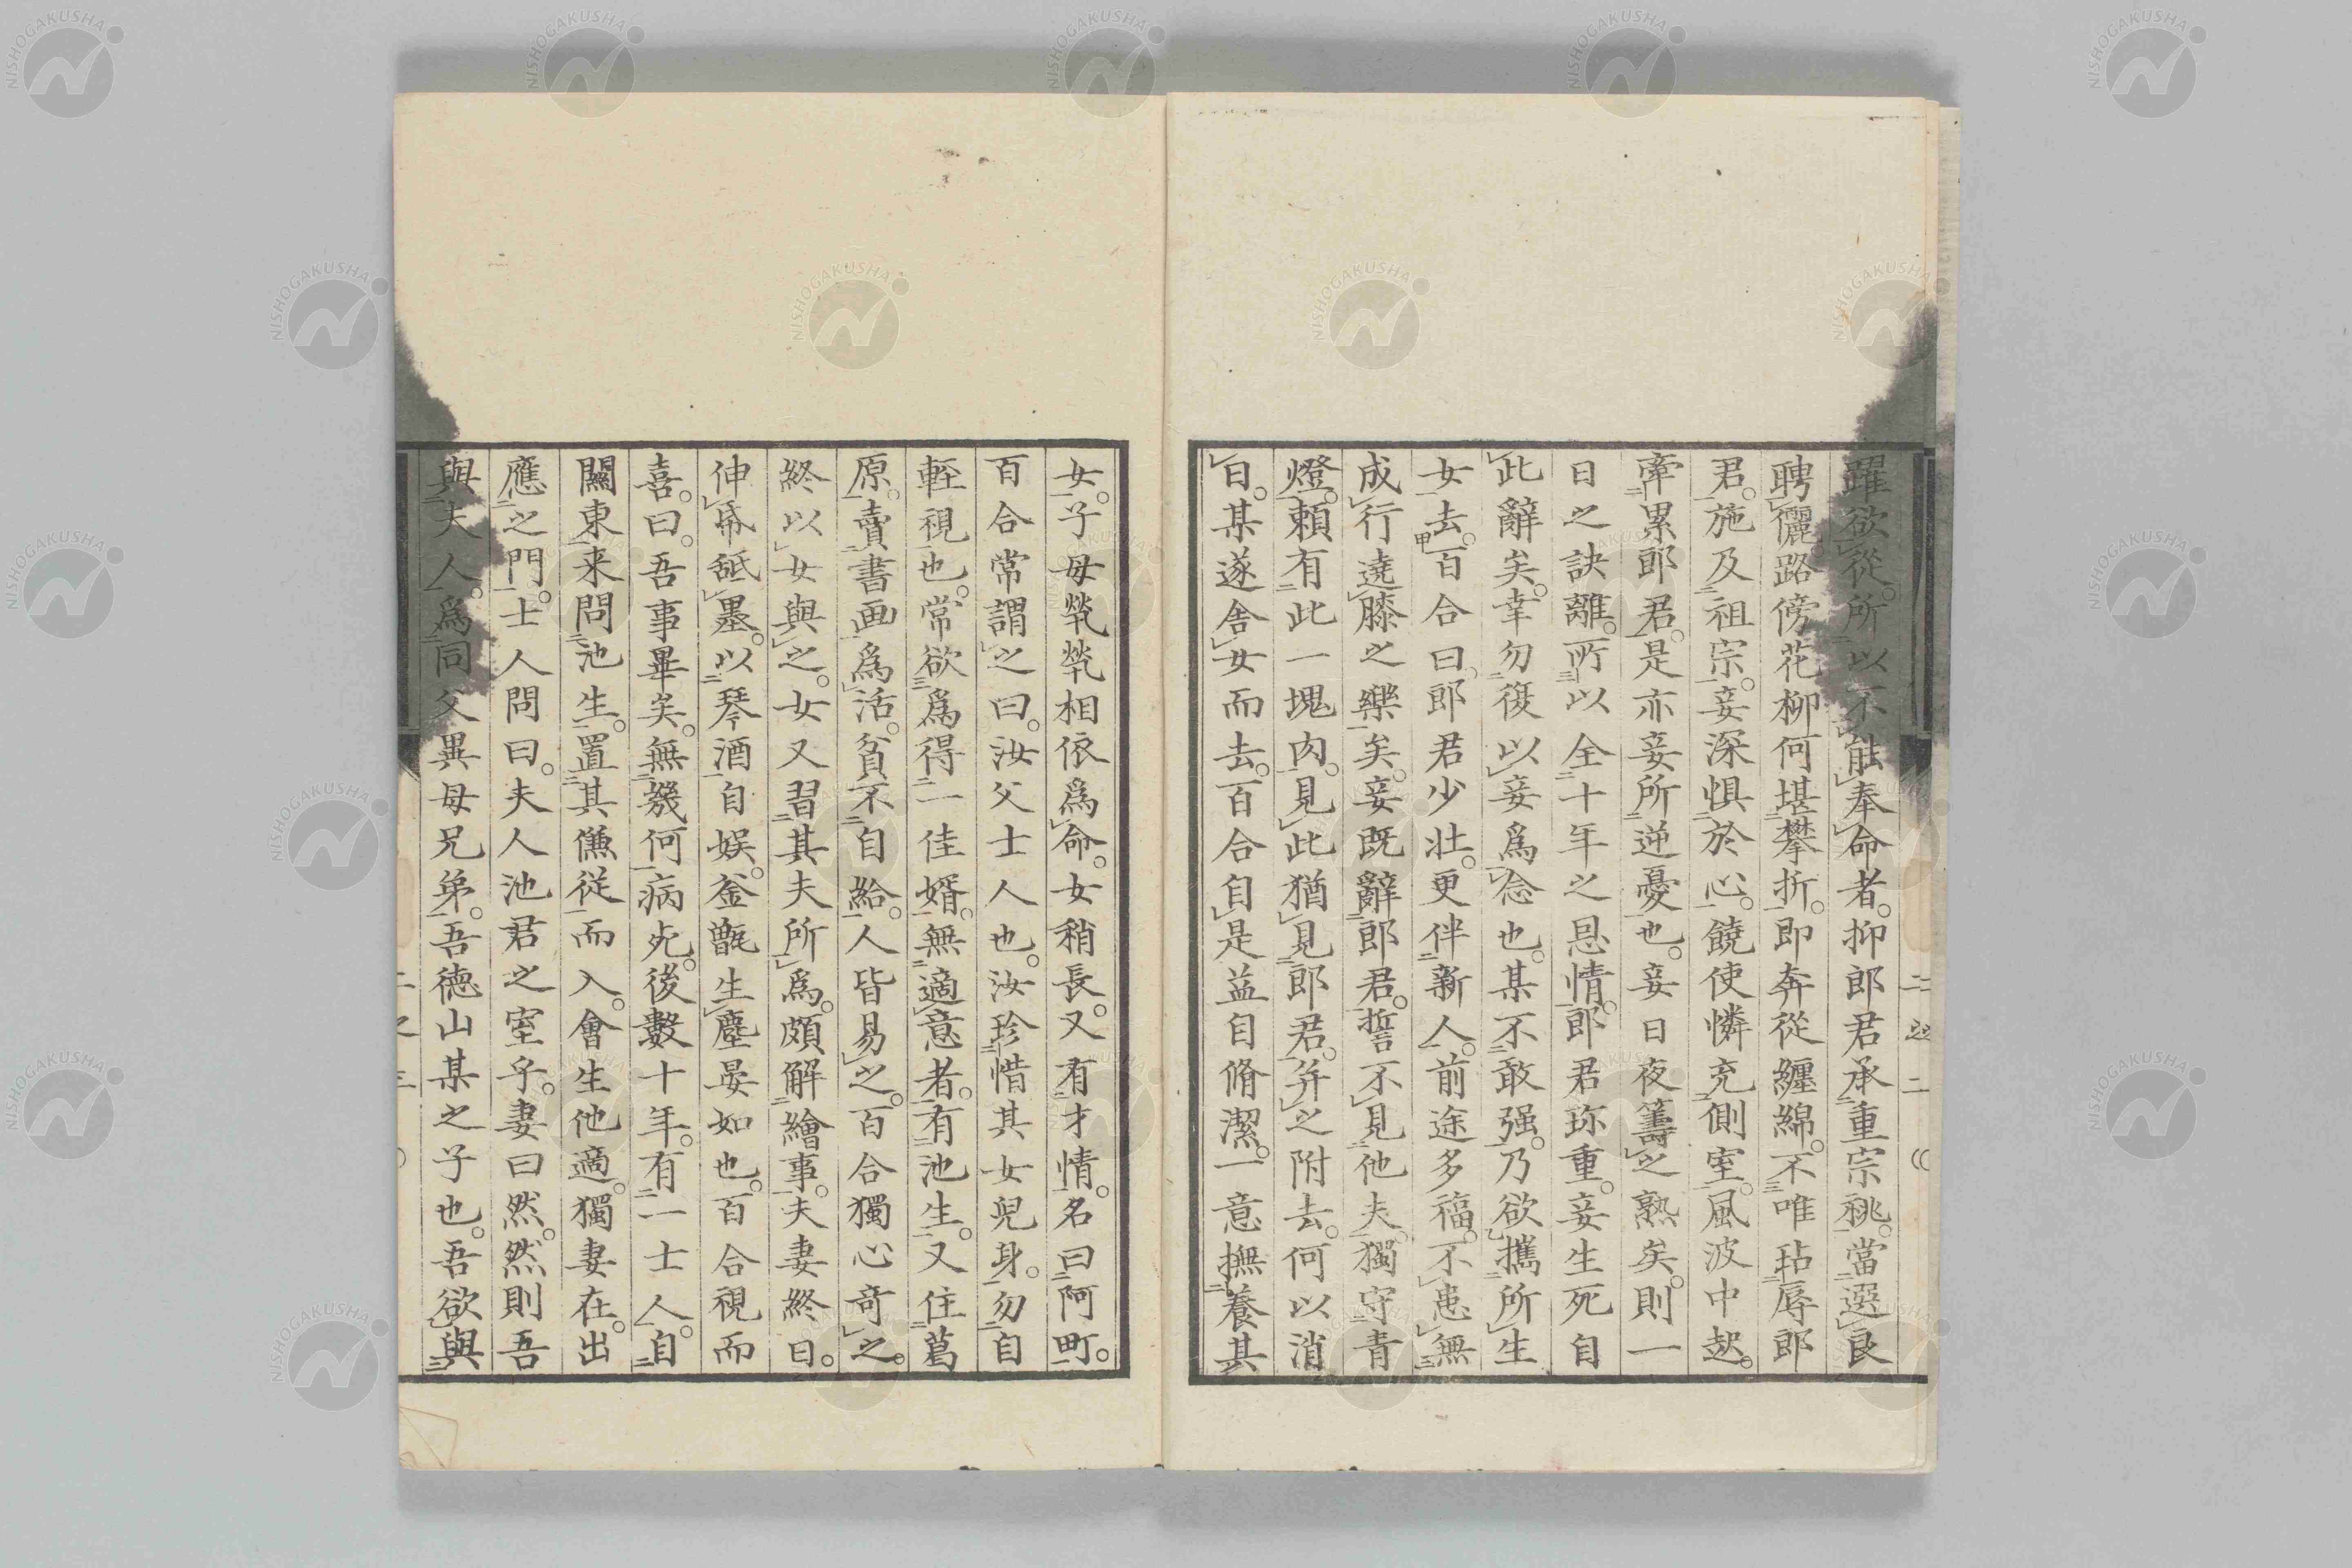 躍欲從。所以不能奉命者。抑郎君承重宗祧。當選良
聘儷。路傍花柳何堪攀折。即奔從纏綿。不唯玷辱郎
君。施及祖宗。妾深惧於心。饒使憐充側室。風波中起。
牽累郎君。是亦妾所逆憂也。妾日夜籌之熟矣。則一
日之訣離。所以全十年之恩情。郎君珎重。妾生死自
此辭矣。幸勿復以妾爲念也。某不敢强。乃欲攜所生
女去。百合曰、郎君少壯。更伴新人。前途多福。不患無
成行遶膝之樂矣。妾既辭郎君。誓不見他夫。獨守青
燈。頼有此一塊肉。見此猶見郎君。并之附去。何以消
日。某遂舍女而去。百合自是益自脩潔。一意撫養其
二之二
女。子母煢煢相依爲命。女稍長。又有才情。名曰阿町。
百合常謂之曰。汝父士人也。汝珍惜其女兒身。勿自
輕視也。常欲爲得一佳婿。無適意者。有池生。又住葛
原。賣書画爲活。貧不自給。人皆易之。百合獨心奇之。
終以女與之。女又習其夫所爲。頗解繪事。夫妻終日。
伸帋舐墨。以琴酒自娯。釜甑生塵晏如也。百合視而
喜。曰。吾事畢矣。無幾何病死。後數十年。有一士人。自
關東来問池生。置其傔從而入。會生他適。獨妻在。出
應之門。士人問曰。夫人池君之室乎。妻曰然。然則吾
與夫人。爲同父異母兄弟。吾德山某之子也。吾欲與
二之三
NISHOGAKUSHA